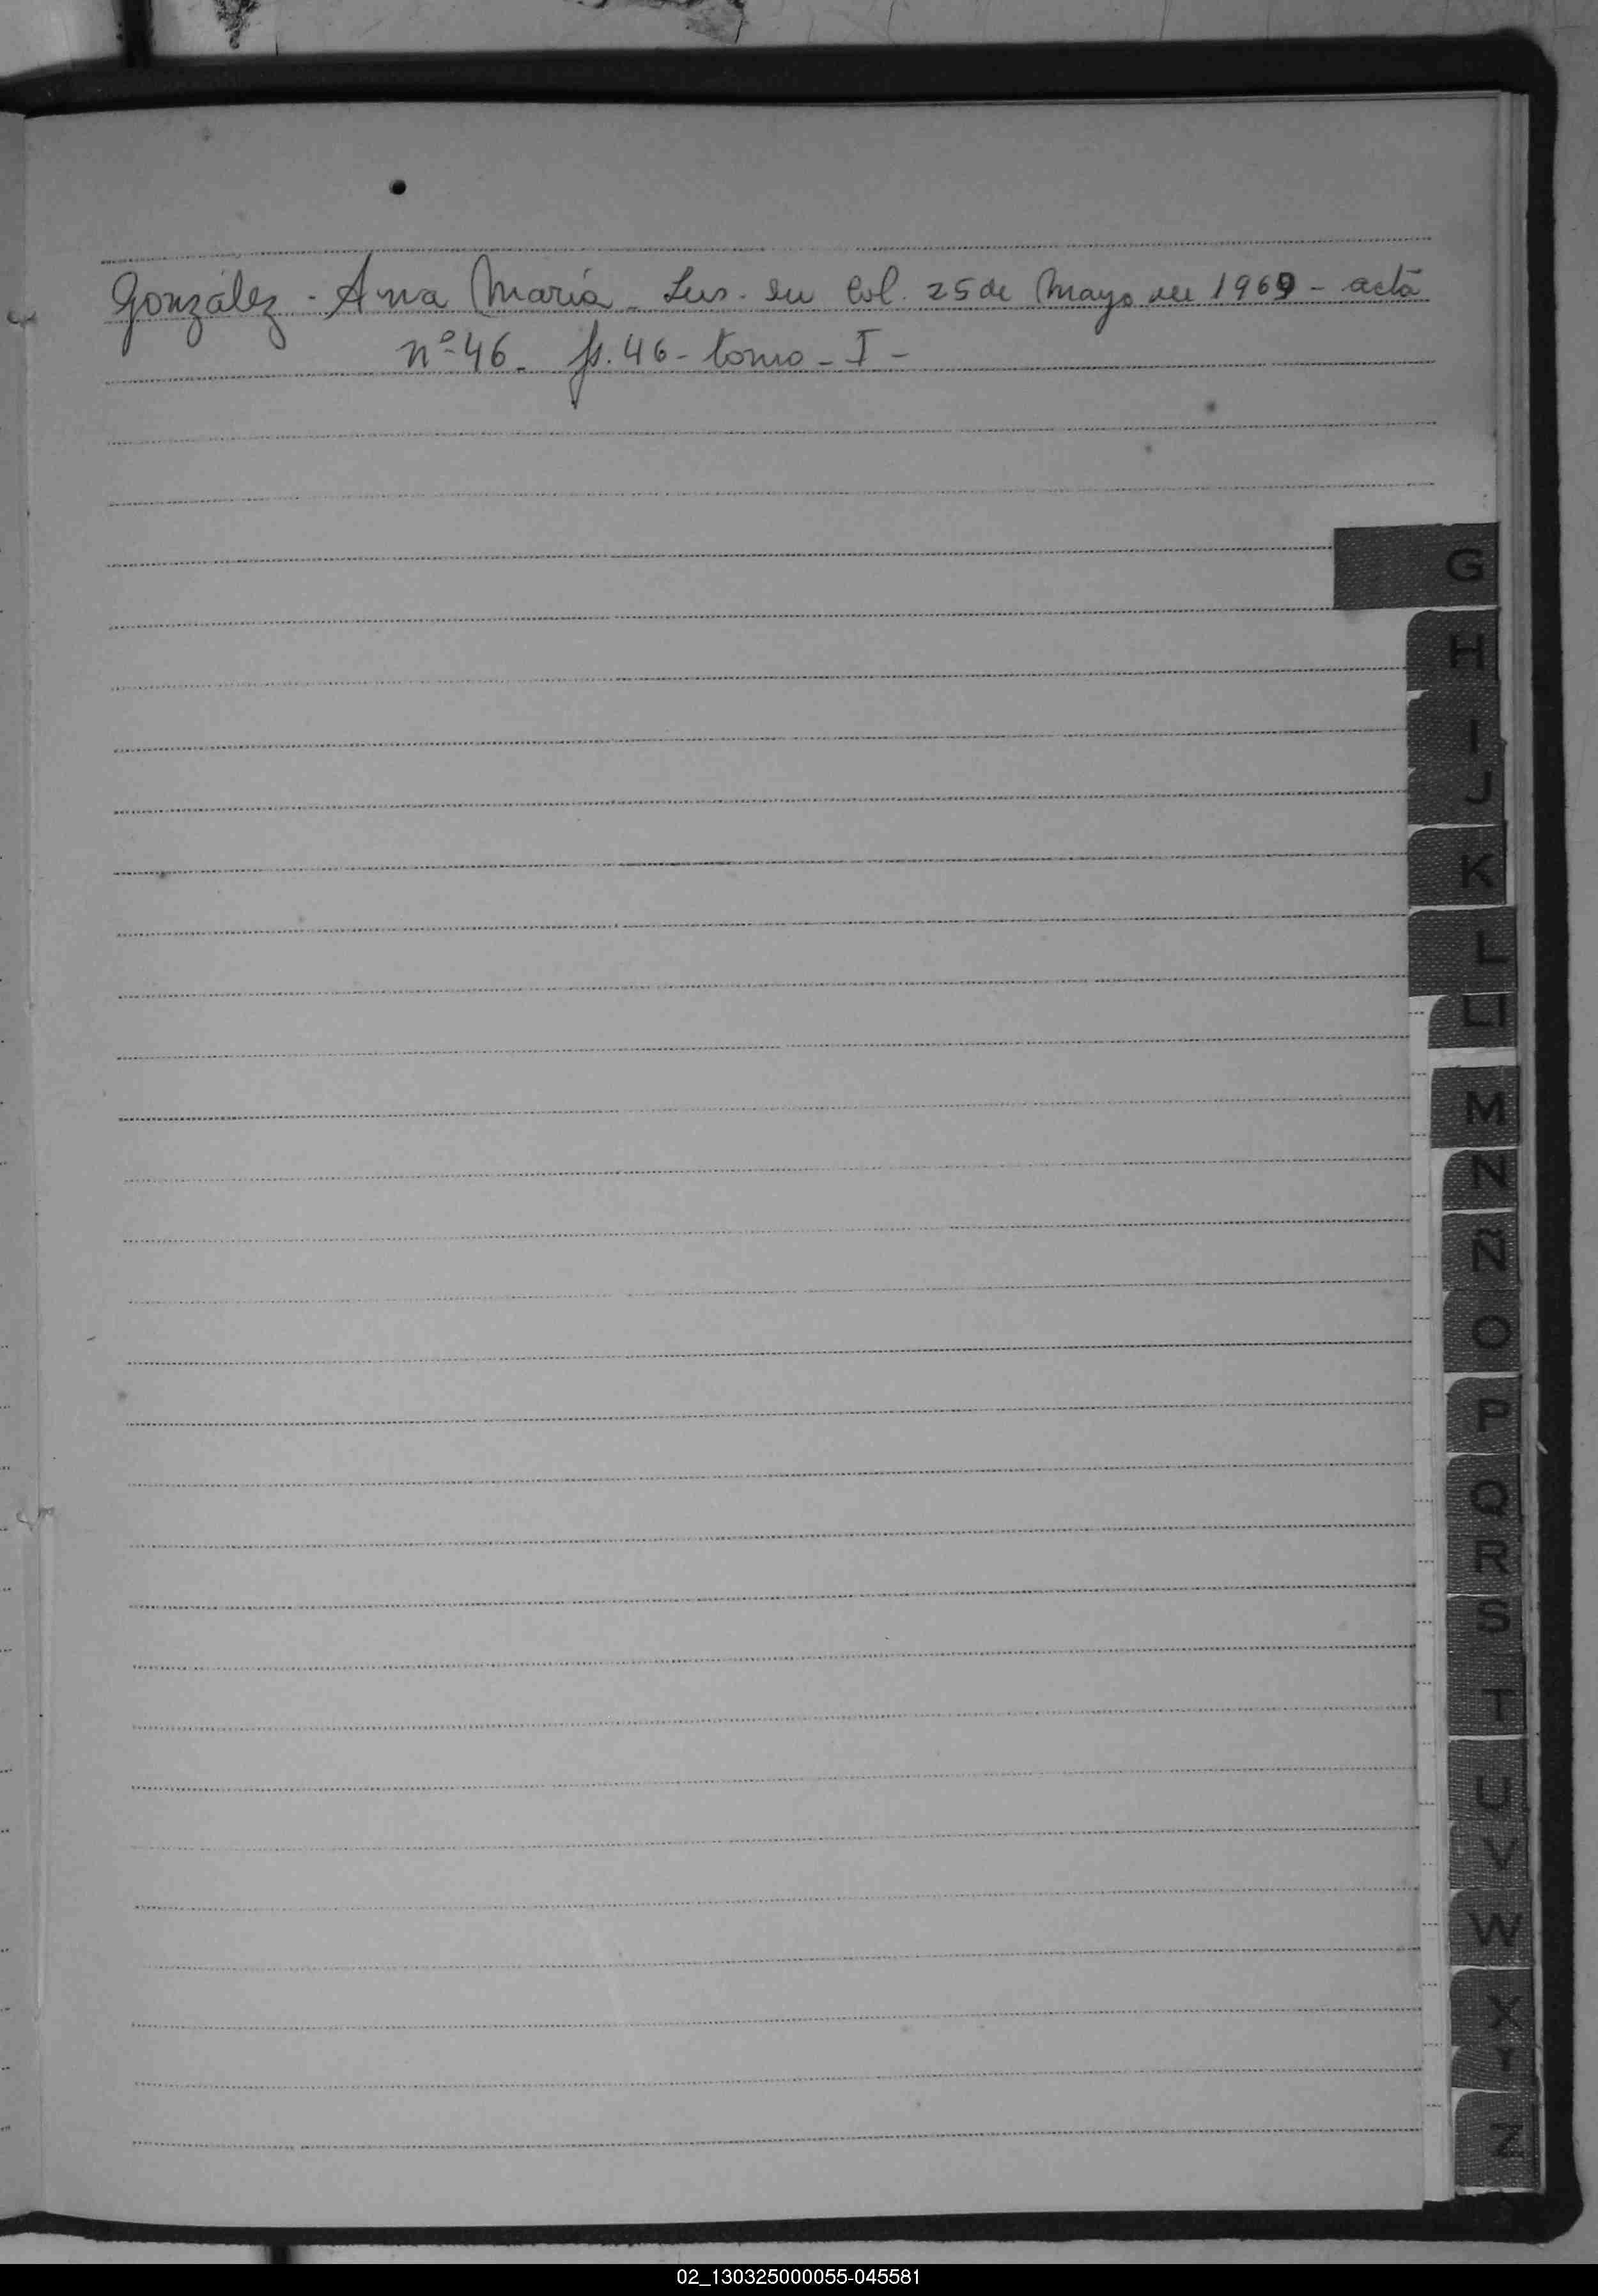 González - Ana María - Ins. en Col. 25 de Mayo del 1969 - acta
nº 46 - fs. 46 - tomo - I -
G
H
I
J
K
L
LL
M
N
Ñ
O
P
Q
R
S
T
U
V
W
X
Y
Z
02_130325000055-045581